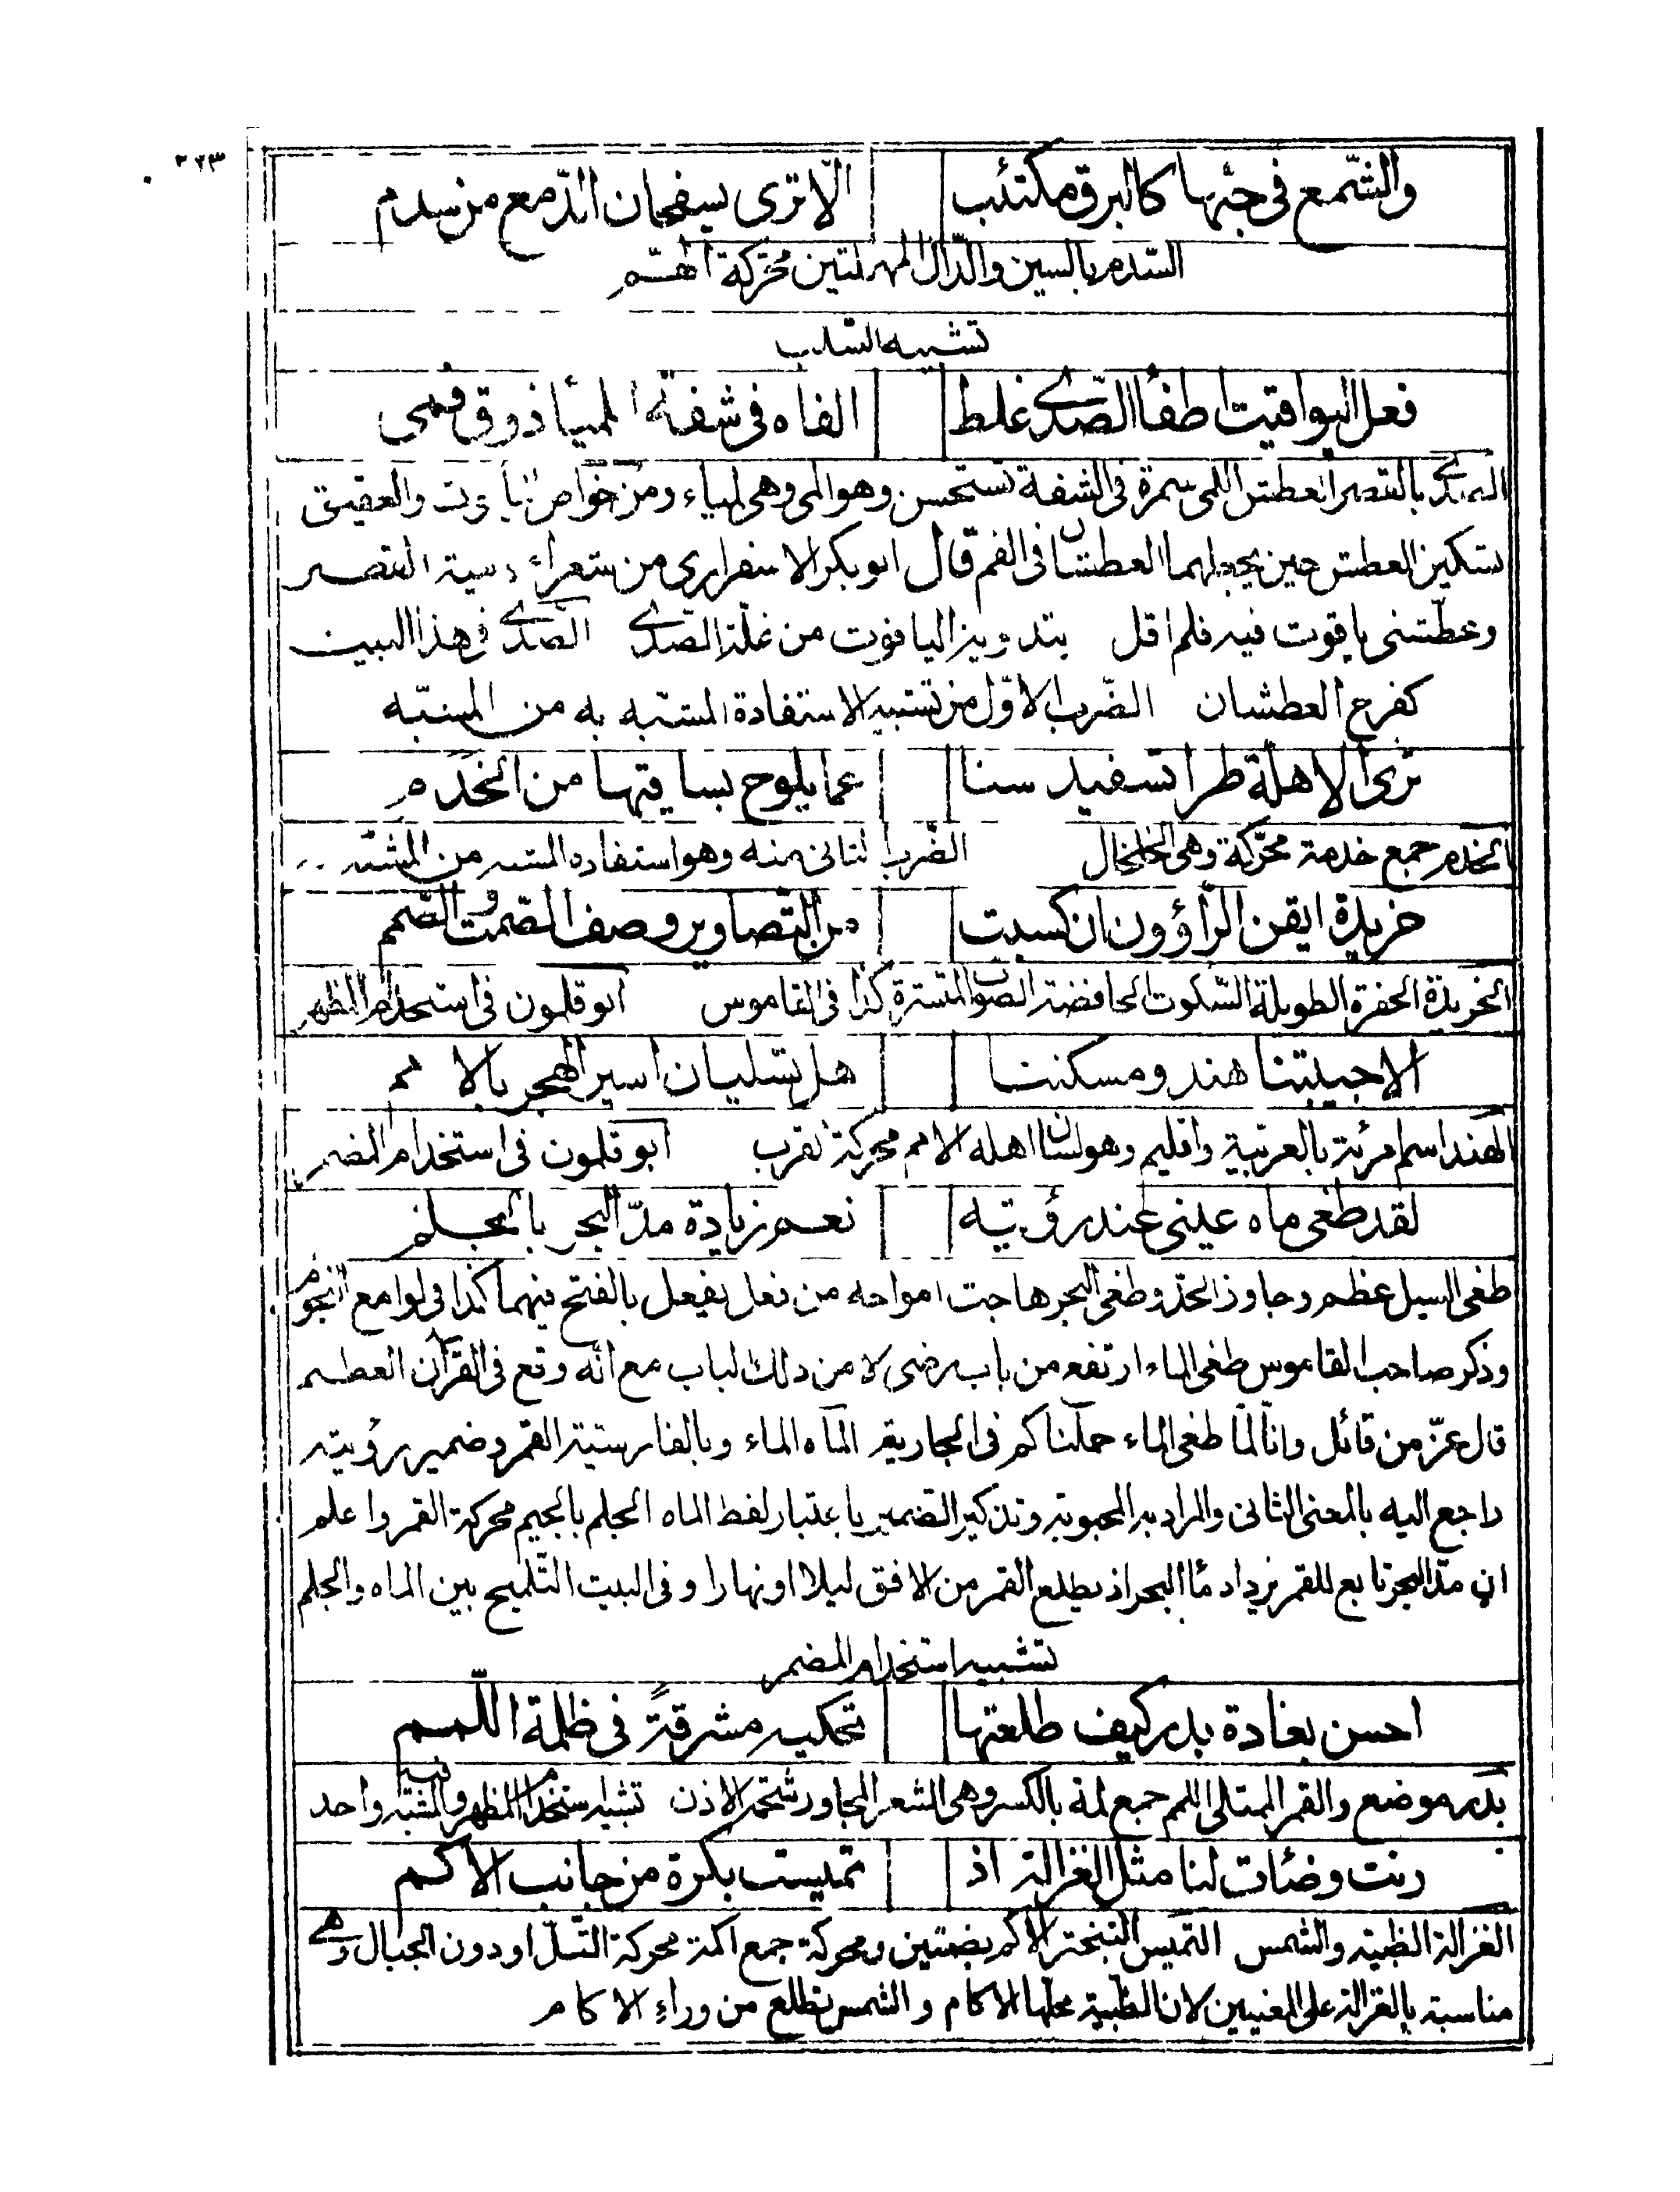 ٣٢٣
والشّمع في جنبها كالبرق مكتئب الّا ترى يسفحان الدّمع من سدم
السّدم بالسين والدّال المهملتين محرّكة الهمّ
تشبيه السّلب
فعل اليواقيت اطفأ الصّدى غلط الفاه في شفة لمياء ذوق فمي
الصّدى بالقصر العطش اللمى سمرة في الشفة تستحسن وهو المى وهي لمياء ومن خواص اليا قوت والعقيق
تسكين العطش حين يجعلهما العطشان في الفم قال ابو بكر الاسفرايري من شعراء دمية القصر
وعطّشني ياقوت فيه فلم اقل بتدويز الياقوت من غلّة الصّدى الصّدى في هذا البيت
كفرح العطشان الضّرب الاوّل من تشبيه الاستفادة المشبّه به من المشبّه
ترى الاهلّة طرا تستفيد سنا عما يلوح بساقيها من الخدم
الخدم جمع خدمة محرّكة وهي الخلخال الضّرب الثاني منه وهو استفادة المشبه من المشبّه
خريدة ايقن الرّاؤون ان كسبت من التّصاوير وصف الصّمت والصّمم
الخريدة الخفرة الطويلة السّكوت الخافضة الصوت المتسترة كذا في القاموس ابو قلمون في استخدام المظهر
الا جيبتنا هند ومسكنت هل تسليان اسير الهجر بالا مم
الهند اسم امرئة بالعربية واقليم وهو لسان اهله الامم محركة القرب ابو قلمون في استخدام المضمر
لقد طغى ماه عيني عند رؤيته نعم زيادة مدّ البحر بالجلم
طغى السيل عظم وجاوز الحدّ وطغى البحر هاجت امواجه من فعل يفعل بالفتح فيهما كذا في لوامع النجوم
وذكر صاحب القاموس طغى الماء ارتفع من باب رضى لا من ذلك الباب مع انّه وقع في القرآن العظيم
قال عزّ من قائل وانّا لمّا طغى الماء حملناكم في الجارية الماه الماء وبالفارسيّة القمر وضمير رؤيته
راجع اليه بالمعنى الثاني والمراد به المحبوبة وتذكير الضمير باعتبار لفظ الماه الجلم بالجيم محركة القمر واعلم
ان مدّ البحر تابع للقمر يزداد ماء البحر اذ يطلع القمر من الافق ليلا او نهارا وفي البيت التّلميح بين الماه والجلم
تشبيه استخدام المضمر
احسن بغادة بدر كيف طلعتها تحكيه مشرقةً في ظلمة اللّمم
بدر موضع والقمر الممتلي اللمم جمع لمة بالكسر وهي الشعر المجاور شحمة الاذن تشبيه استخدام المظهر والمشبّه واحد
رنت وضأت لنا مثل الغزالة اذ تميست بكرة من جانب الاكم
الغزالة الظبية والشمس التميس التبختر الاكم بضمتين ومحركة جمع اكمة محركة التّلّ او دون الجبال وهي
مناسبة بالغزالة على المعنيين لان الظبية محلها الاكام والشمس تطلع من وراء الاكام